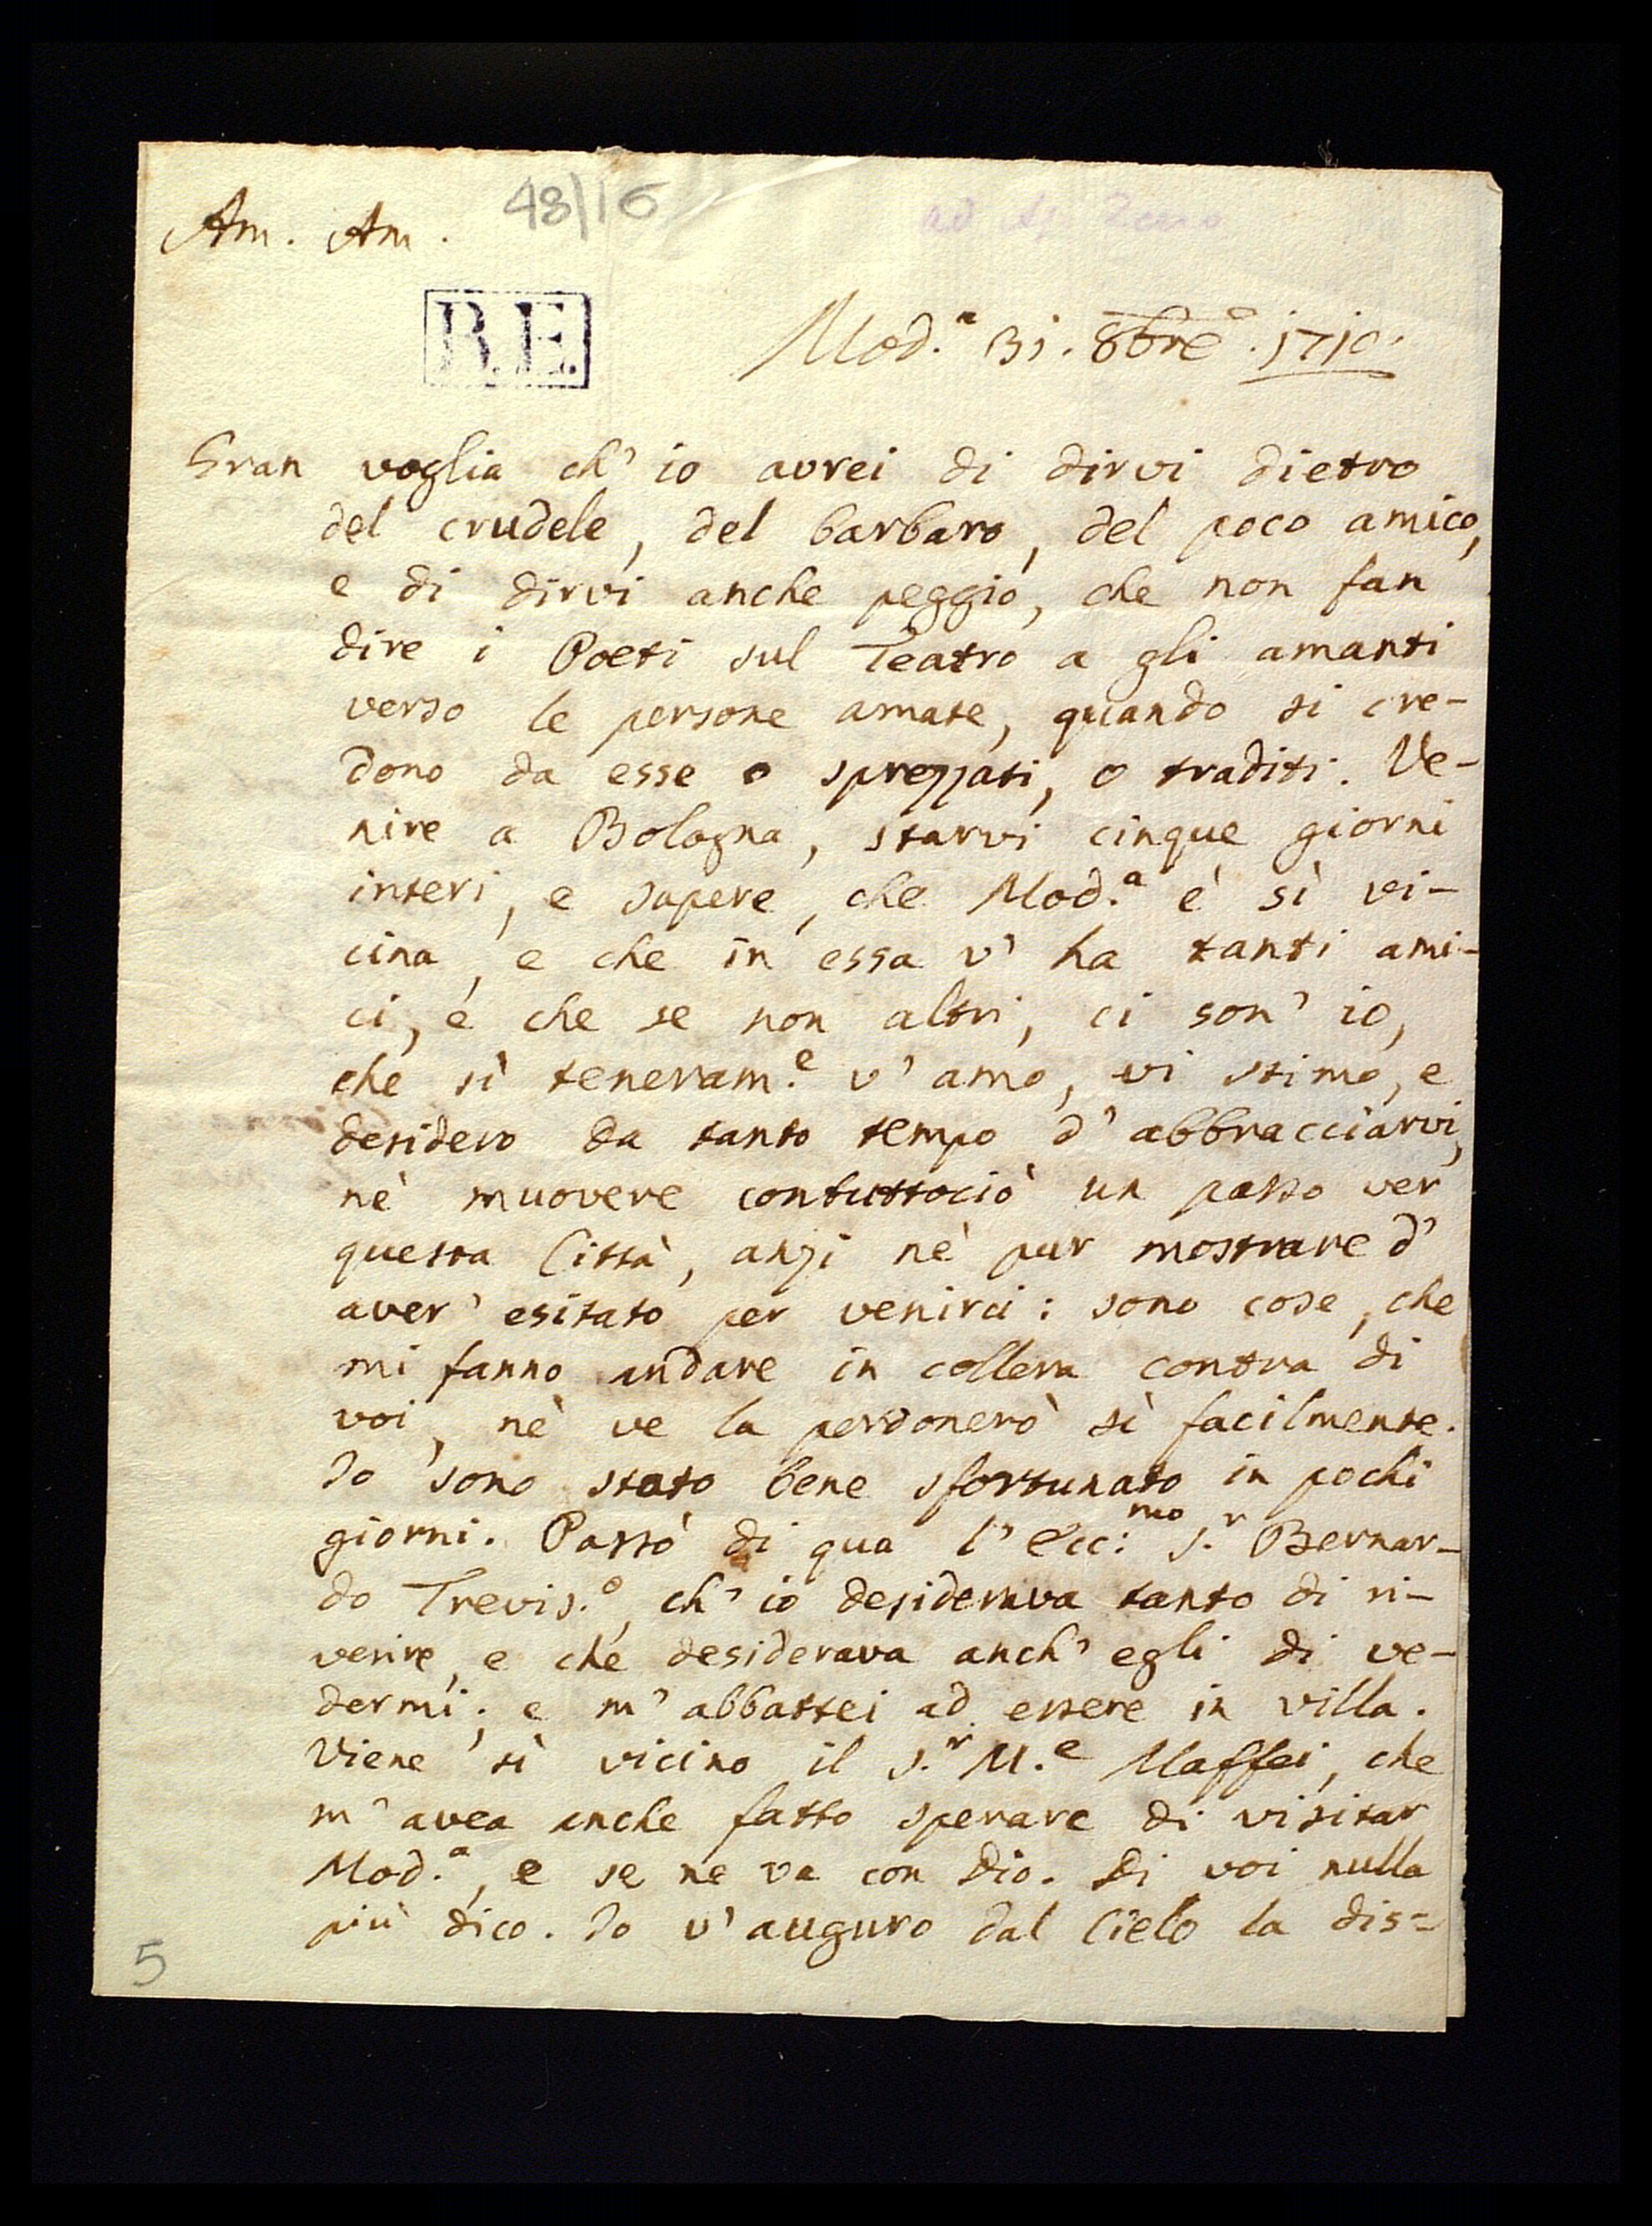 Am. Am.
48/16
B.E.
Mod.ª 31. 8bre. 1710.
Gran voglia ch' io avrei di dirvi dietro
del crudele, del barbaro, del poco amico,
e di dirvi anche peggio, che non fan
dire i Poeti sul Teatro a gli amanti
verso le persone amate, quando si cre-
dono da esse o sprezzati, o traditi. Ve-
nire a Bologna, starvi cinque giorni
interi, e sapere, che Mod.ª è sì vi-
cina, e che in essa v' ha tanti ami-
ci, e che se non altri, ci son' io,
che sì teneram.e v' amo, vi stimo, e
desidero da tanto tempo d' abbracciarvi,
nè muovere contuttociò un passo ver
questa Città, anzi nè pur mostrare d'
aver' esitato per venirci: sono cose, che
mi fanno andare in collera contra di
voi, nè ve la perdonerò sì facilmente.
Io sono stato bene sfortunato in pochi
giorni. Passò di qua l' Ecc:mo S.r Bernar-
do Trevis.o, ch' io desiderava tanto di ri-
verire, e che desiderava anch' egli di ve-
dermi; e m' abbattei ad essere in villa.
Viene sì vicino il S.r M.e Maffei, che
m' avea anche fatto sperare di visitar
Mod.ª, e se ne va con Dio. Di voi nulla
più dico. Io v' auguro dal Cielo la dis=
5